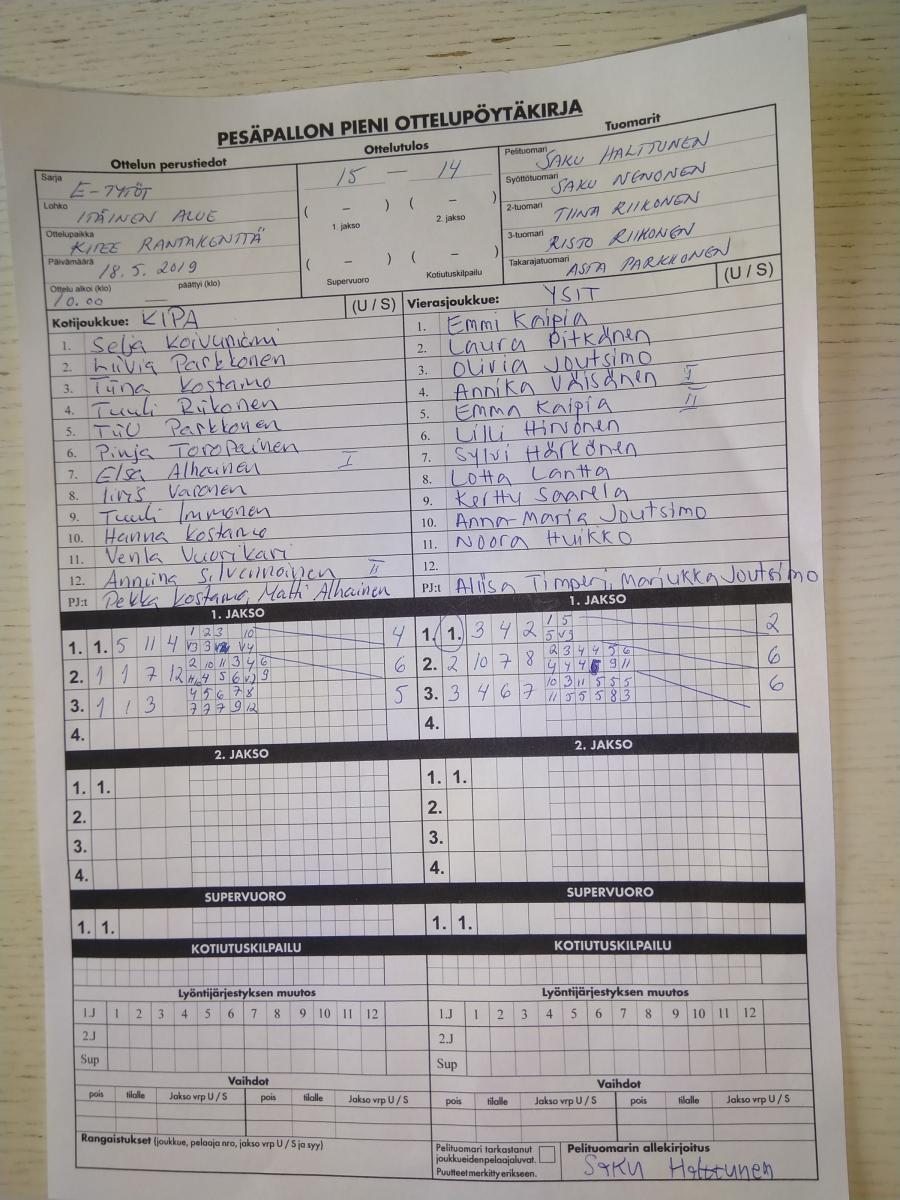 PESÄPALLON PIENI OTTELUPÖYTÄKIRJA
Ottelun perustiedot
Ottelutulos
Tuomarit
Sarja E-TYTÖT
Lohko ITÄINEN ALUE
Ottelupaikka KITEE RANTAKENTTÄ
Päivämäärä 18.5.2019
Ottelu alkoi (klo) päättyi (klo)
10.00 —
15 — 14
( – ) ( – )
1. jakso 2. jakso
( – ) ( – )
Supervuoro Kotiutuskilpailu
Pelituomari SAKU HALTTUNEN
Syöttötuomari SAKU NENONEN
2-tuomari TIINA RIIKONEN
3-tuomari RISTO RIIKONEN
Takarajatuomari ASTA PARKKONEN
Kotijoukkue: KIPA (U / S)
1. Selja Koivuniemi
2. Liivia Parkkonen
3. Tiina Kostamo
4. Tuuli Riikonen
5. Tiiu Parkkonen
6. Pinja Toropainen
7. Elsa Alhainen I
8. Iiris Varonen
9. Tuuli Immonen
10. Hanna Kostamo
11. Venla Vuorikari
12. Anniina Silvennoinen II
PJ:t Pekka Kostamo, Matti Alhainen
Vierasjoukkue: YSIT (U / S)
1. Emmi Kaipia
2. Laura Pitkänen
3. Olivia Joutsimo
4. Annika Väisänen I
5. Emma Kaipia II
6. Lilli Hirvonen
7. Sylvi Härkönen
8. Lotta Lantta
9. Kerttu Saarela
10. Anna-Maria Joutsimo
11. Noora Huikko
12.
PJ:t Aliisa Timperi, Marjukka Joutsimo
1. JAKSO
1. 1. 5 11 4 4
2. 1 1 7 12 6
3. 1 1 3 4 5 6 7 8 5
7 7 7 9 12
4.
1. JAKSO
1. 1. 3 4 2 1 5 2
2. 2 10 7 8 2 3 4 4 5 6 6
3. 3 4 6 7 10 3 11 5 5 5 6
11 5 5 5 8 3
4.
2. JAKSO
1. 1.
2.
3.
4.
2. JAKSO
1. 1.
2.
3.
4.
SUPERVUORO
1. 1.
SUPERVUORO
1. 1.
KOTIUTUSKILPAILU
KOTIUTUSKILPAILU
Lyöntijärjestyksen muutos
1.J 1 2 3 4 5 6 7 8 9 10 11 12
2.J
Sup
Lyöntijärjestyksen muutos
1.J 1 2 3 4 5 6 7 8 9 10 11 12
2.J
Sup
Vaihdot
pois tilalle Jakso vrp U / S pois tilalle Jakso vrp U / S
Vaihdot
pois tilalle Jakso vrp U / S pois tilalle Jakso vrp U / S
Rangaistukset (joukkue, pelaaja nro, jakso vrp U / S ja syy)
Pelituomari tarkastanut
joukkueidenpelaajaluvat.
Puutteet merkitty erikseen.
Pelituomarin allekirjoitus
Saku Halttunen